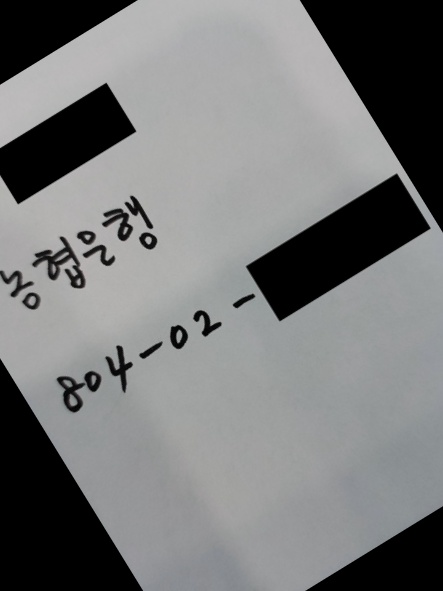 농협은행
804-02-